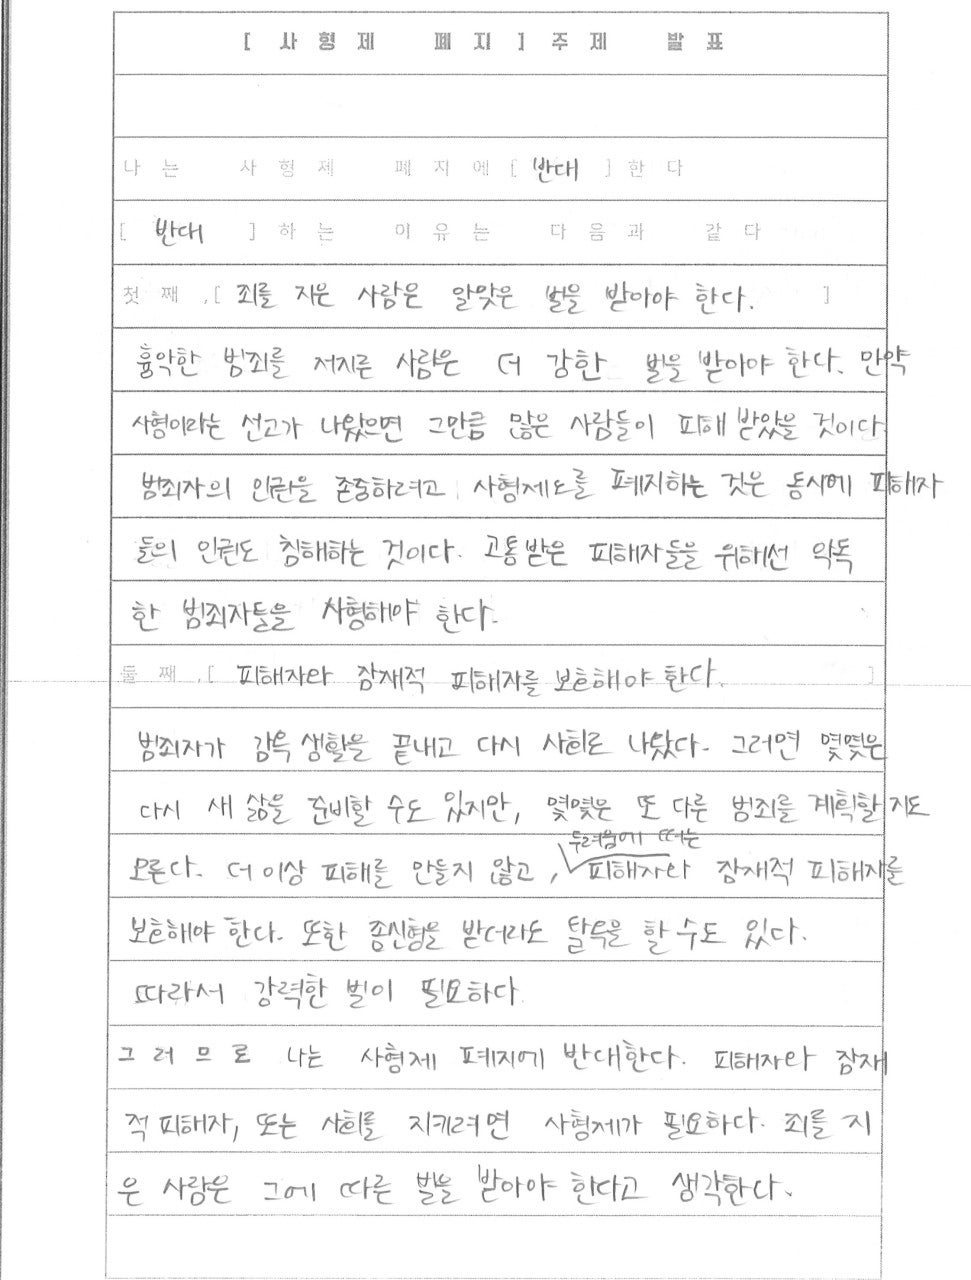 [ 사형제 폐지 ] 주제 발표
나는 사형제 폐지에 [ 반대 ] 한다
[ 반대 ] 하는 이유는 다음과 같다
첫째, [ 죄를 지은 사람은 알맞은 벌을 받아야 한다. ]
흉악한 범죄를 저지른 사람은 더 강한 벌을 받아야 한다. 만약
사형이라는 선고가 나왔으면 그만큼 많은 사람들이 피해 받았을 것이다.
범죄자의 인권을 존중하려고 사형제도를 폐지하는 것은 동시에 피해자
들의 인권도 침해하는 것이다. 고통받은 피해자들을 위해선 악독
한 범죄자들을 사형해야 한다.
둘째, [ 피해자와 잠재적 피해자를 보호해야 한다. ]
범죄자가 감옥 생활을 끝내고 다시 사회로 나왔다. 그러면 몇몇은
다시 새 삶을 준비할 수도 있지만, 몇몇은 또 다른 범죄를 계획할 지도
두려움에 떠는
모른다. 더 이상 피해를 만들지 않고, 피해자와 잠재적 피해자를
보호해야 한다. 또한 종신형을 받더라도 탈옥을 할 수도 있다.
따라서 강력한 벌이 필요하다
그러므로 나는 사형제 폐지에 반대한다. 피해자와 잠재
적 피해자, 또는 사회를 지키려면 사형제가 필요하다. 죄를 지
은 사람은 그에 따른 벌을 받아야 한다고 생각한다.